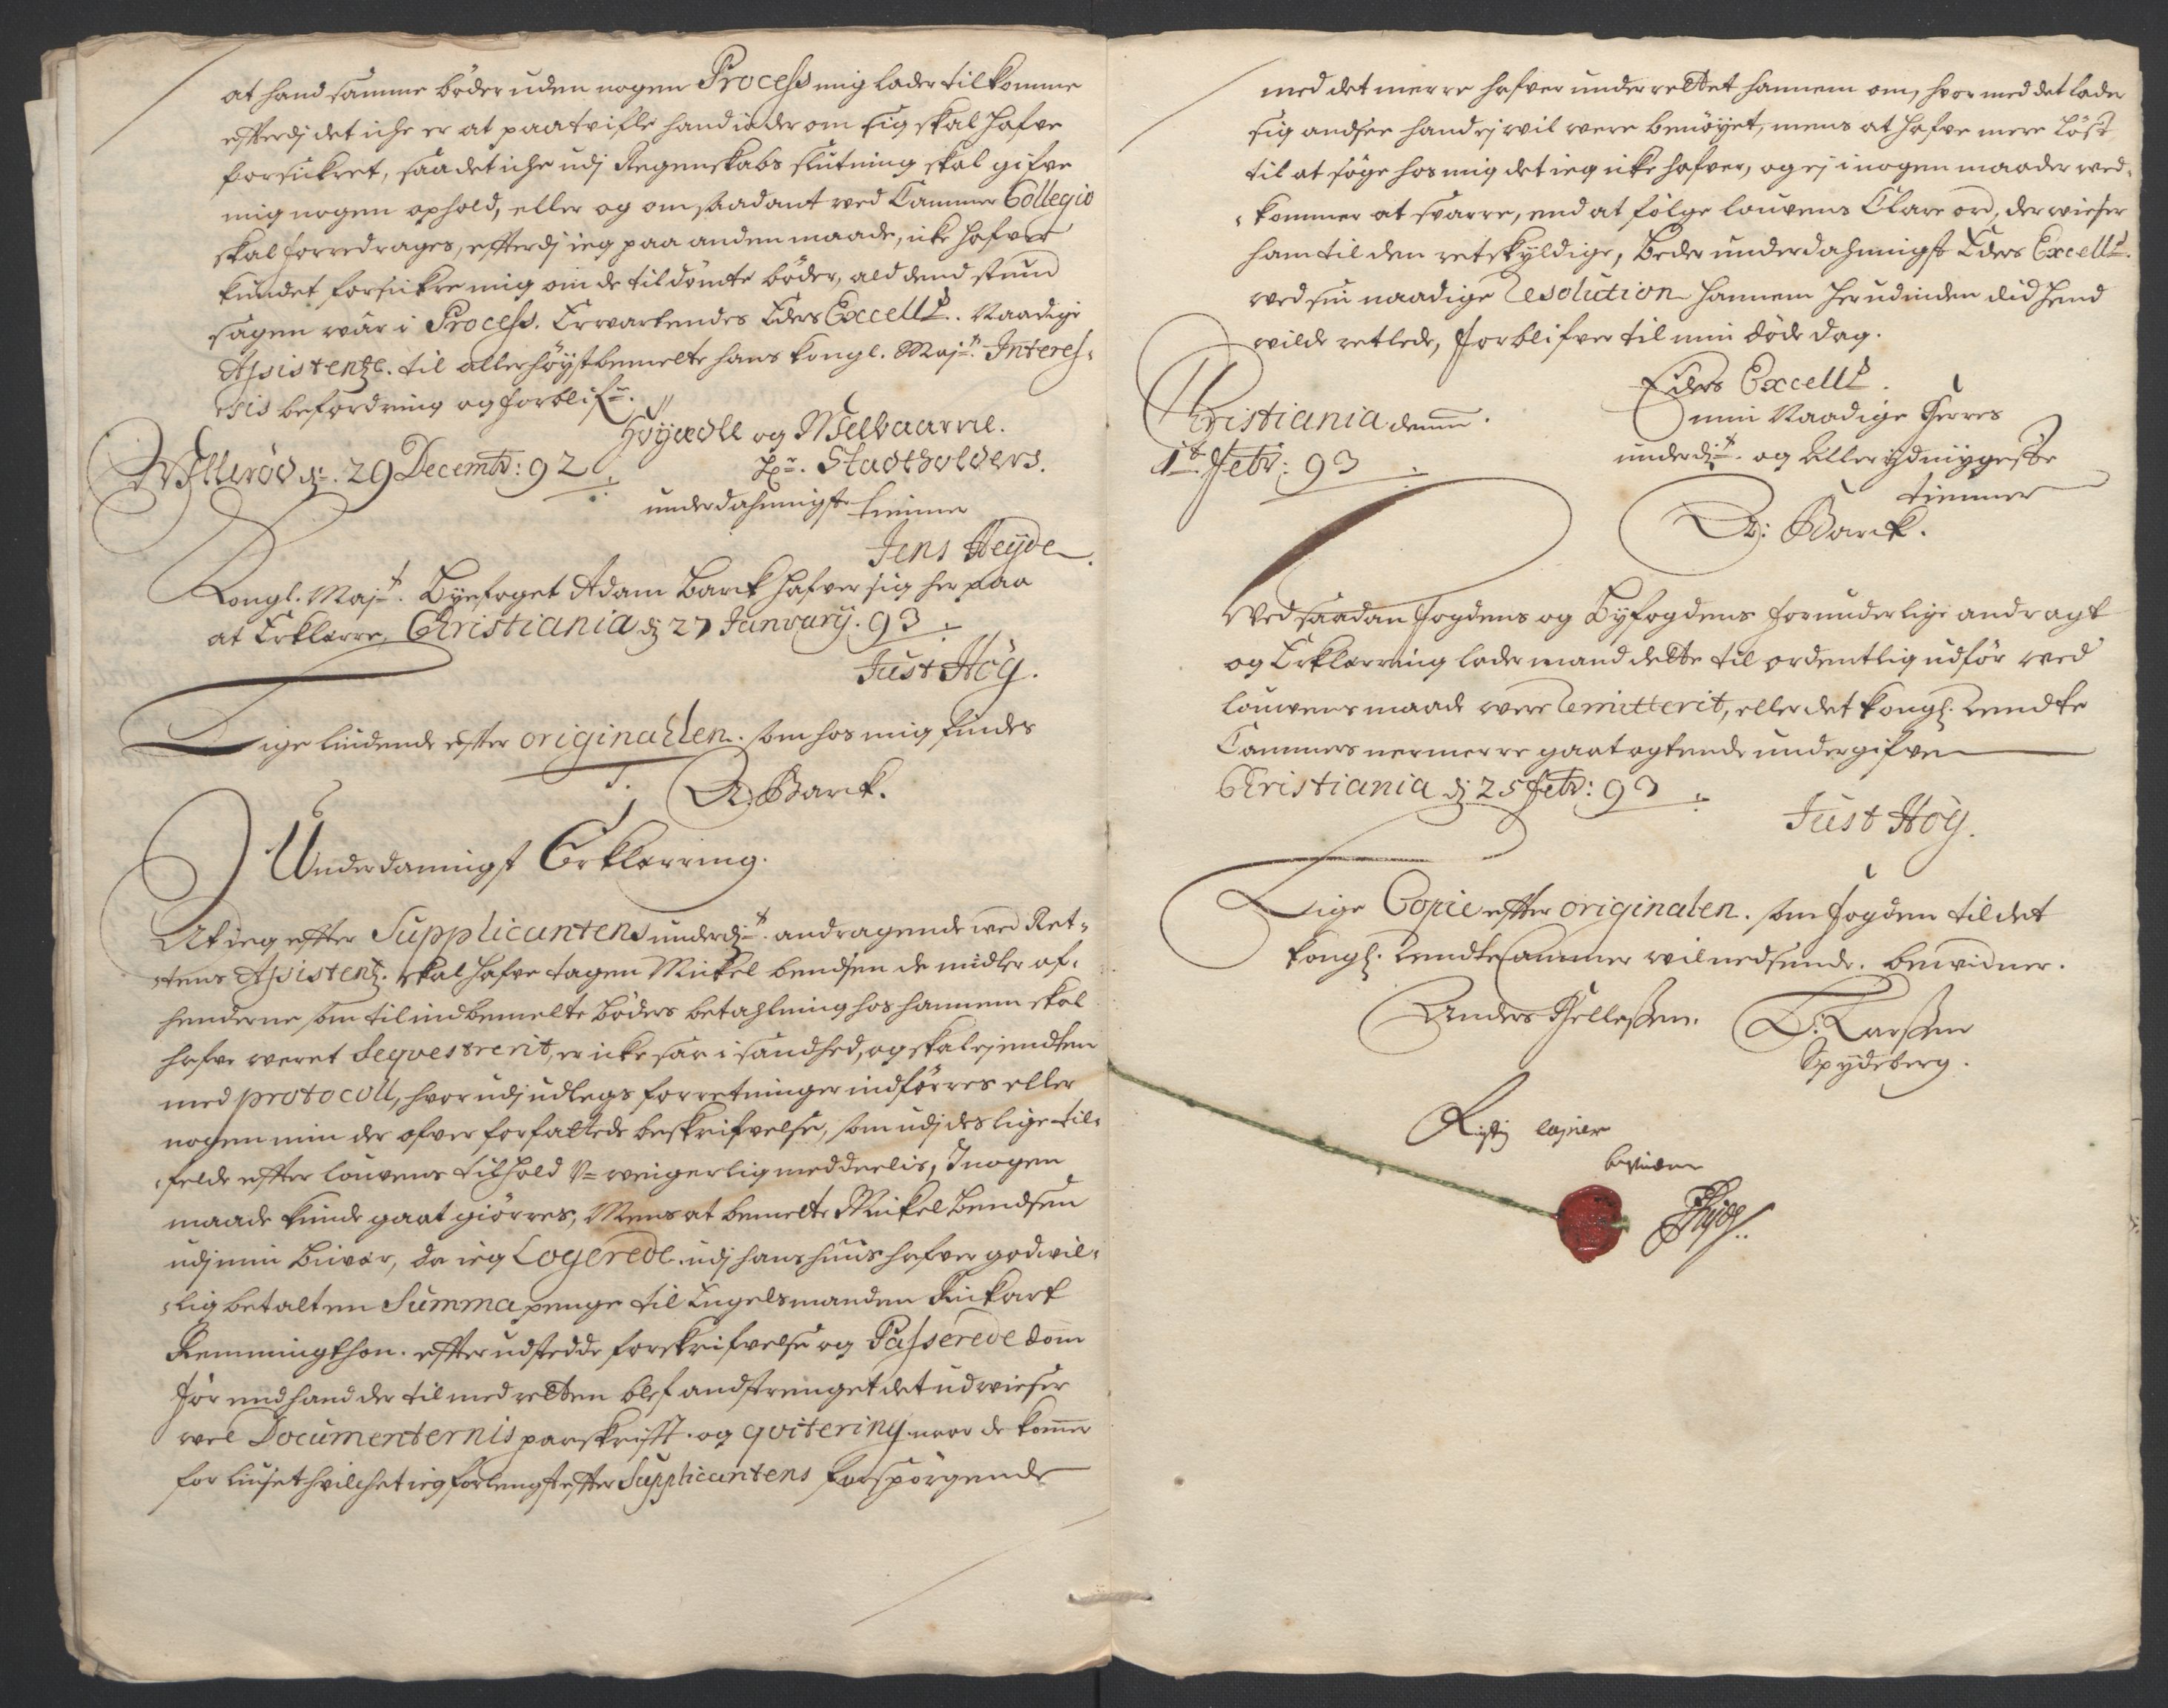 at hand samme böder uden nogen Process mig lader tilkomme
efterdj det iche er at paatvifle hand io der om sig skal hafve
forsickret, saa det iche udj Regenskabs slutning skal gifve
mig nogen ophold, eller og om saadant ved Cammer Collegio
skal forredrages, efterdj ieg paa anden maade, icke hafver
kundet forsickre mig om de tildömte böder, ald dend stund
sagen wär i Process. Erwartendes Eders Excell:. Naadige
Assistentze. til allerhöystbemelte hans kongl. Maj:ts Interes-
-sis befordring og forblifr.
Höyædle og Welbaarne.
Hr. Stadtholders.
underdahnnigste tienner
Welleröd dn. 29 Decembr: 92
Jens Heyde
Kongl. Maj:t. Byefoget Adam Barck hafver sig her paa
at Erklærre, Christiania dj 27 January. 93
Just Hög.
Lige liudende efter originahlen. som hos mig findes
A: Barck.
Underdannigst Erklærring.
At ieg efter Supplicantens underd:t andragende wed Ret-
-tens Assistentz. skal hafve tagen Mickel bendsen de midler af-
henderne som til indbemelte Böders betahlning hos hannem skal
hafve weret Seqvestrerit, er icke saa i sandhed, og skal ej endten
med protocoll, hvor udj udlegs forretninger indförres eller
nogen min der ofver forfattede beskrifvelse, som udj des lige til-
-felde efter louvens tilhold V= weigerlig meddeelis, J nogen
maade kunde gaat giörres, Mens at bemelte Mickel Bendsen
udj min Biwær, da ieg Logerede. udj hans huus hafver godwil-
-lig betalt en Summa penge til Engelsmanden Rickart
Remmingthon. efter udstedde forskrifvelse og Passerede dom
för end hand der til med retten blef andstrenget det udwieser
wel Documenternis paaskrifft. og qvitering naar de kommer
for liuset hvilchet ieg forlengst efter Supplicantens forspörgende
med det merre hafver underrettet hannem om, hvor med det lader
sig andsee hand ej wil were benöyet, mens at hafve mere Löst
til at söge hos mig det ieg icke hafver, og ej i nogen maader wed-
-kommer at svarre, end at fölge louvens Clare ord, der wieser
ham til den retskyldige, Beder underdahnnigst Eders Excell:.
wed sin naadige Resolution hannem her udinden did hend
wilde retlede, forblifver til min döde dag.
Eders Excell:.
min Naadige Herres
underd:t. og Aller ydmygeste
tienner
Christiania denn.
1te Febr: 93
A: Barck.
Wed saadan fogdens og Byfogdens forunderlige andragt
og Erklærring lader mand dette til ordentlig udför wed
louvens maade were Remitterit, eller det kongl. Rendte
Cammers nermerre gaat agtende undergifve
Christiania dj 25 Febr: 93
Just Hög.
Lige Copie efter originalen. som fogden til det
kongl. Rendte Cammer wil nedsende. bewidner.
Anders Hellessen.
L: Larssen
Spydeberg.
Rigtig Copie
bevidner